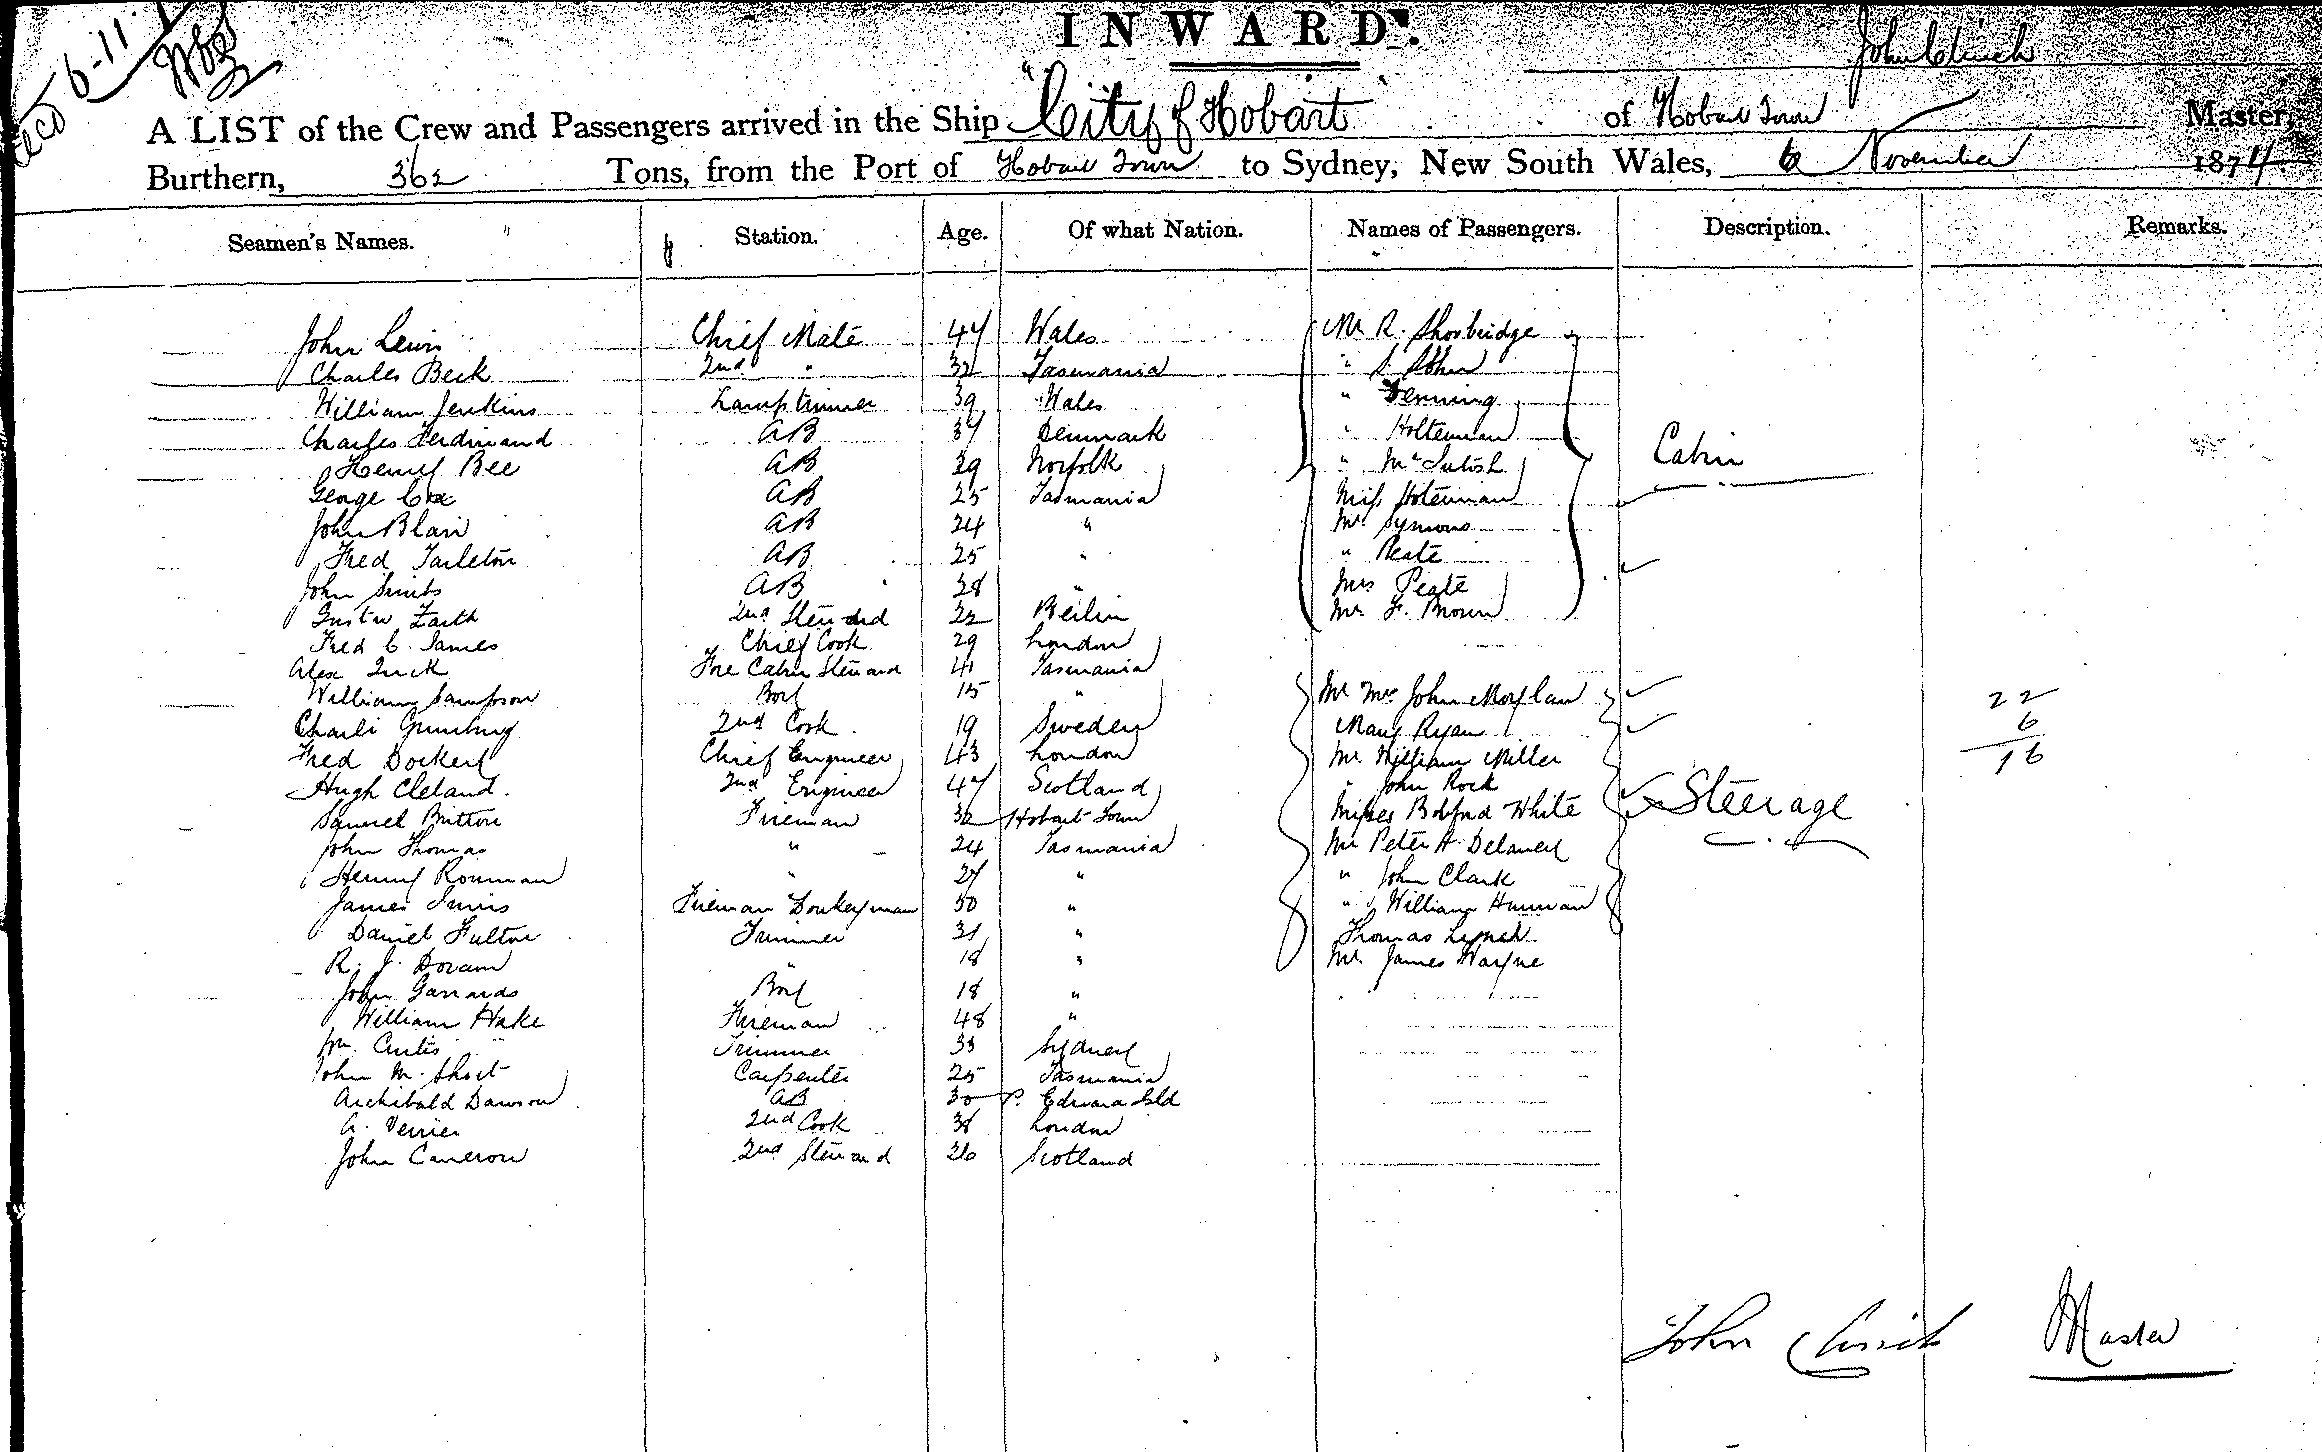 6-11
INWARD.
John Clinch
A LIST of the Crew and Passengers arrived in the Ship "City of Hobart" of Hobart Town Master,
Burthern, 362 Tons, from the Port of Hobart Town to Sydney, New South Wales, 6 November 1874
Seamen's Names. Station. Age. Of what Nation. Names of Passengers. Description. Remarks.
John Lewis Chief Mate 47 Wales Mr R. Shoobridge
Charles Beck 2nd " 32 Tasmania " S.
William Jenkins Lamptrimmer 39 Wales "
Charles Ferdinand AB 37 Denmark " Holteman
Henry Bee AB 29 Norfolk " McIntosh Cabin
George Cox AB 25 Tasmania Miss Holteman
John Blair AB 24 " Mr Symons
Fred Tarleton AB 25 " " Peate
John Smith AB 28 " Mrs Peate
Gustav 2nd Steward 22 Berlin Mr F. Brown
Fred C. James Chief Cook 29 London
Alex Quick Fore Cabin Steward 41 Tasmania
William Sampson Boy 15 " Mr Mrs John 22
Charli 2nd Cook 19 Sweden Mary Ryan 6
Fred Dockery Chief Engineer 43 London Mr William Miller 16
Hugh Cleland. 2nd Engineer 47 Scotland " John Rock Steerage
Samuel Britton Fireman 32 Hobart Town Misses White
John Thomas " 24 Tasmania Mr Peter A. Delaney
Henry " 27 " " John Clark
James Innis Fireman Donkeyman 50 " " William
Daniel Fulton Trimmer 31 " Thomas Lynch
R. J. Doram " 18 " Mr James Wayne
John Garrards Boy 18 "
William Hake Fireman 48 "
Wm. Curtis Trimmer 33 Sydney
John M. Short Carpenter 25 Tasmania
Archibald Dawson AB 30 P. Edward Isld
A. Verrier 2nd Cook 38 London
John Cameron 2nd Steward 26 Scotland
John Clinch Master